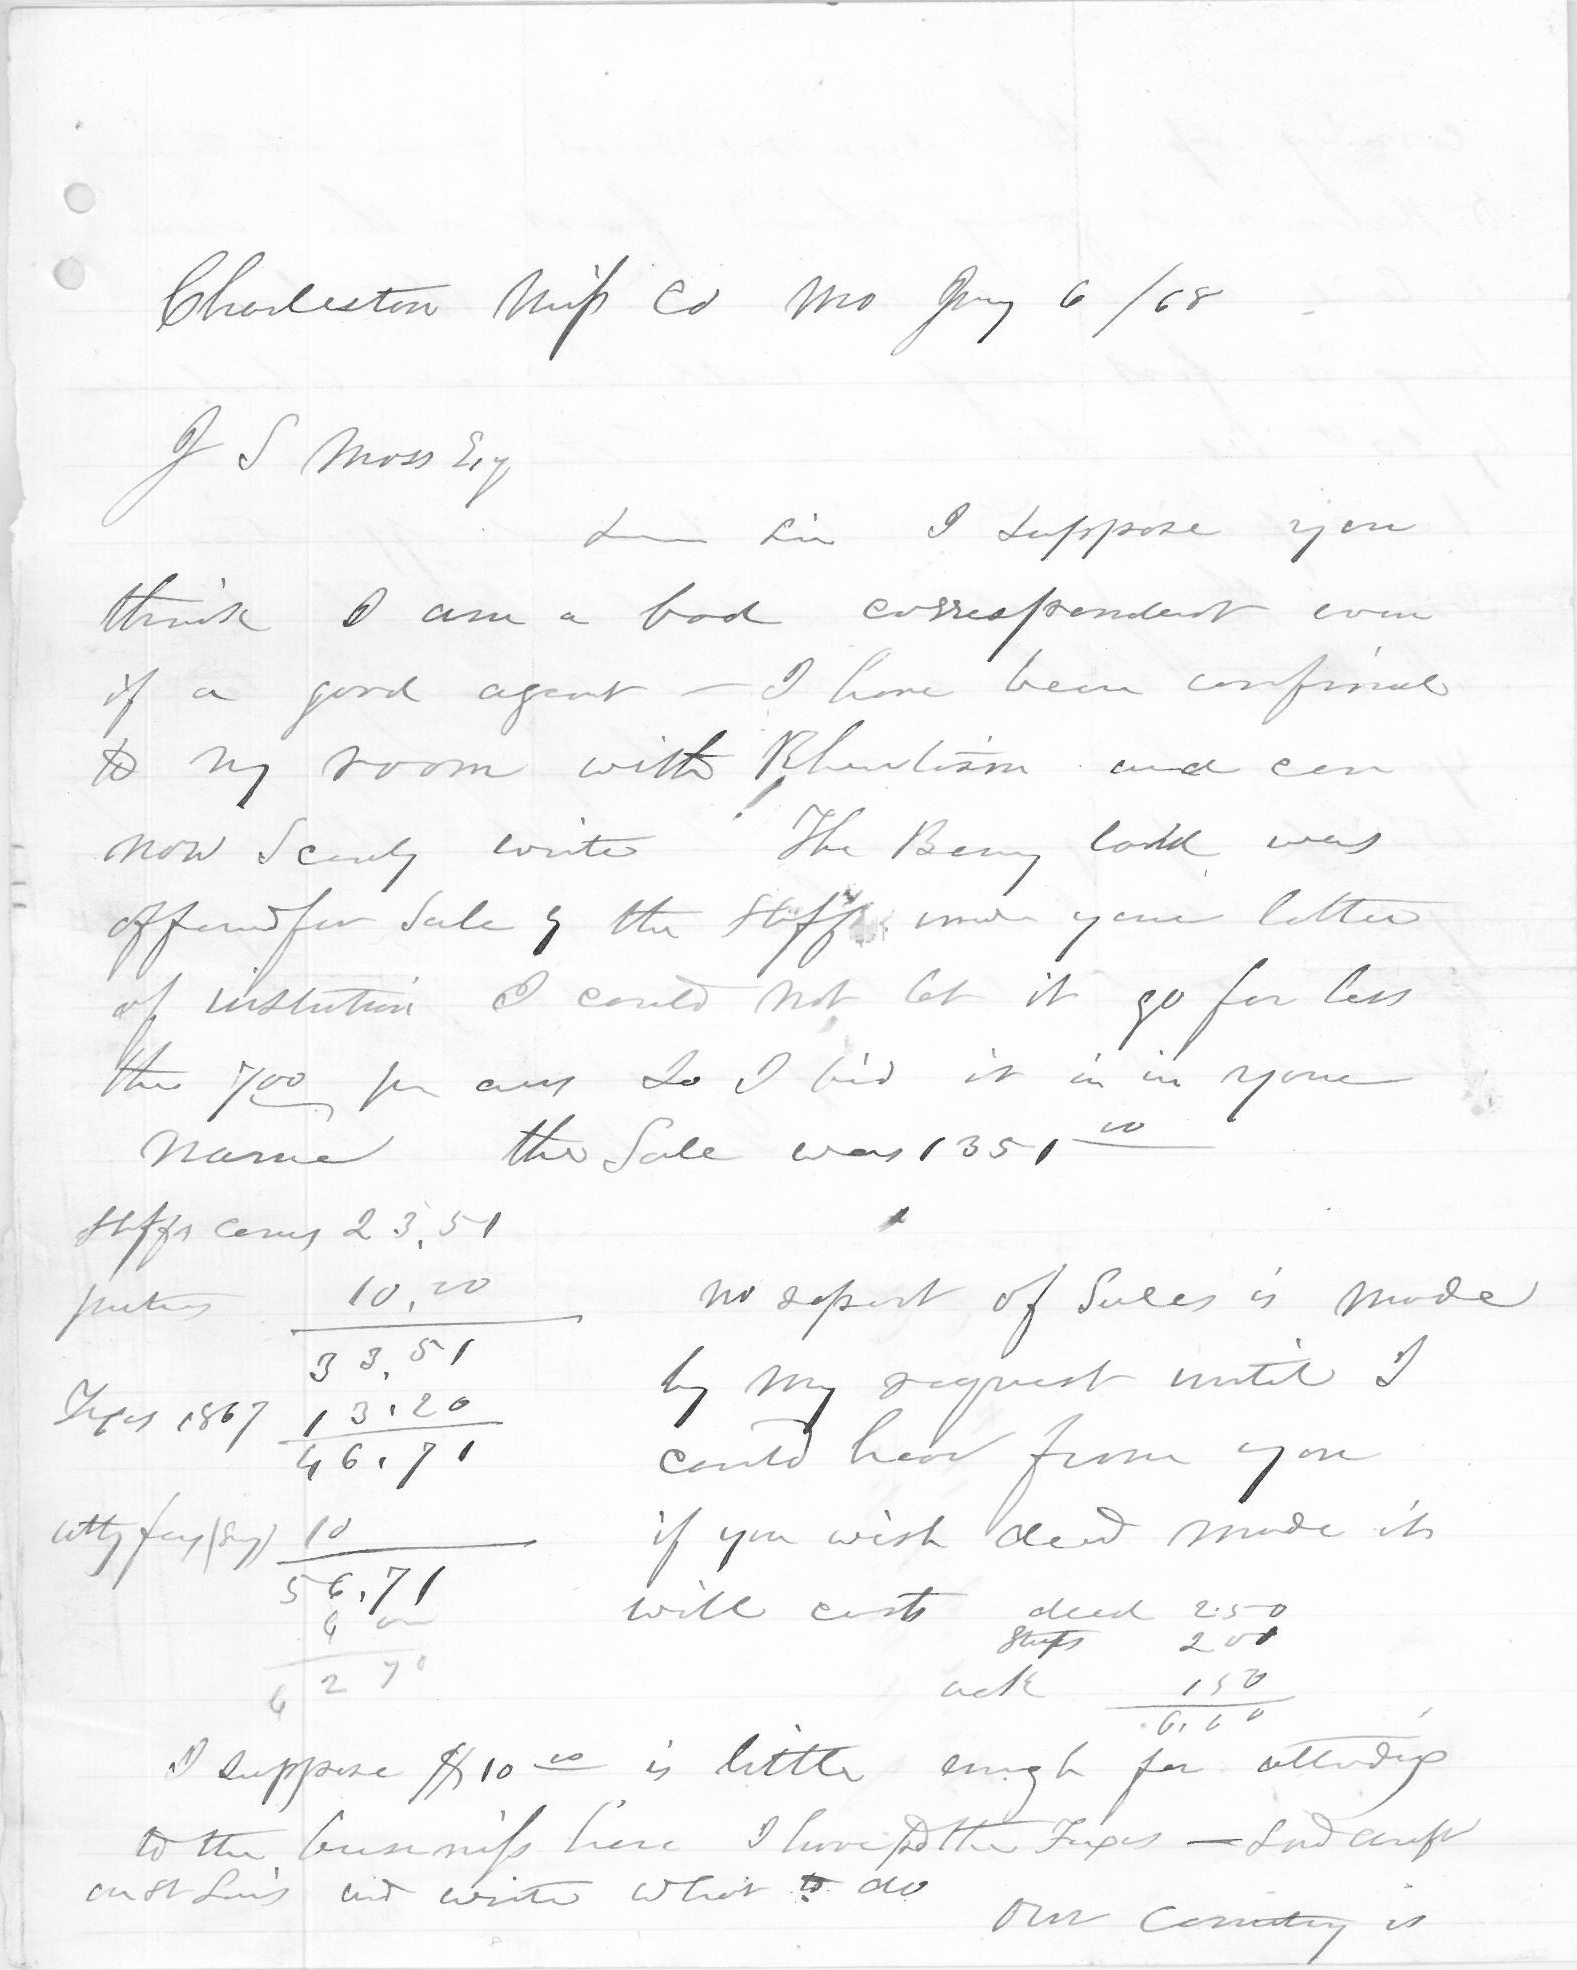 Charleston Miss Co Mo Jany 6 /68
J S Moss Esq
Dear Sir I suppose you
think I am a bad correspondent even
if a good agent — I have been confined
to my room with Rheutism and can
now Scarcly write The Berry land was
offered for Sale by the Shff under your letter
of instrution I could not let it go for less
the 700 per acre So I bid it in in your
name the Sale was 1351 00
Shffs coms 23.51
printers 10.00
33.51
Taxes 1867 13.20
46.71
atty fee (say) 10
56.71
6 00
62 70
no report of Sales is made
by my request until I
could hear from you
if you wish deed made its
will cost deed 2.50
Stmps 2 00
ack 1 50
6.00
I suppose $10 00 is little enough for attending
to the business here I have pd the Taxes — Snd draft
on St Louis and write what to do
Our Country is